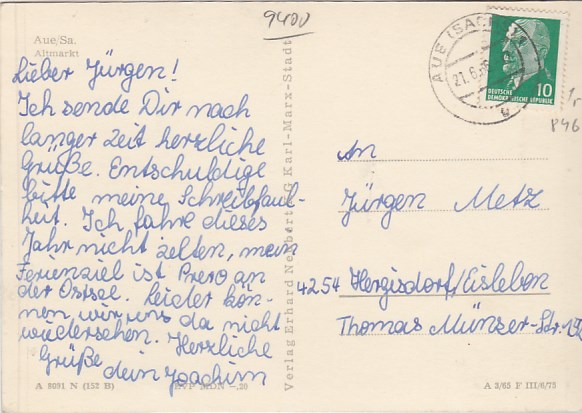 9400
Aue/Sa.
Altmarkt
Lieber Jürgen!
Ich sende Dir nach
langer Zeit herzliche
Grüße. Entschuldige
bitte meine Schreibfaul-
heit. Ich fahre dieses
Jahr nicht zelten, mein
Ferienziel ist Prero an
der Ostsee. Leider kön-
nen wir uns da nicht
wiedersehen. Herzliche
Grüße
dein Joachim
A 8091 N (152 B)
EVP MDN -,20
Verlag Erhard Neubert KG Karl-Marx-Stadt
AUE (SACHS)
21.6.
u
10
DEUTSCHE
DEMOKRATISCHE REPUBLIK
P46
An
Jürgen Metz
4254 Hergisdorf/Eisleben
Thomas Münzer-Str.
A 3/65 F III/6/75